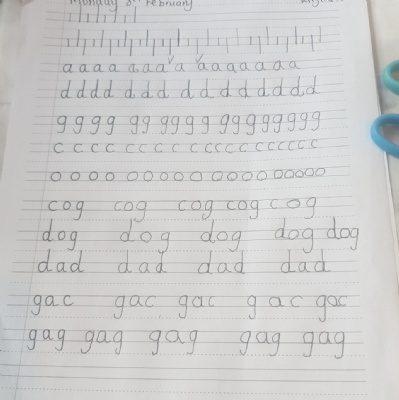 Monday February
a a a a a a a a a a a a a a a
d d d d d d d d d d d d d d d
g g g g g g g g g g g g g g g g g g
c c c c c c c c c c c c c c c c c c c
o o o o o o o o o o o o o o o o o o o
cog cog cog cog cog
dog dog dog dog dog
dad dad dad dad
gac gac gac gac gac
gag gag gag gag gag